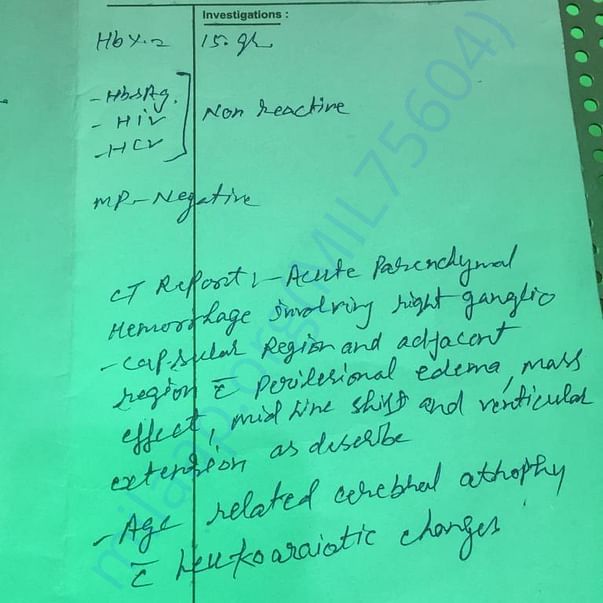 Investigations :
Hb%.- 15. gm
- HbsAg.
- HIV
- HCV
Non reactive
MP - Negative
CT Report :- Acute Parenchymal
Hemorrhage involving right ganglio
- capsular Region and adjacent
region c̄ Perilesional edema, mass
effect, mid line shift and ventricular
extension as describe
- Age related cerebral atrophy
c̄ Leukoaraiotic changes
milaap.org(MIL75604)